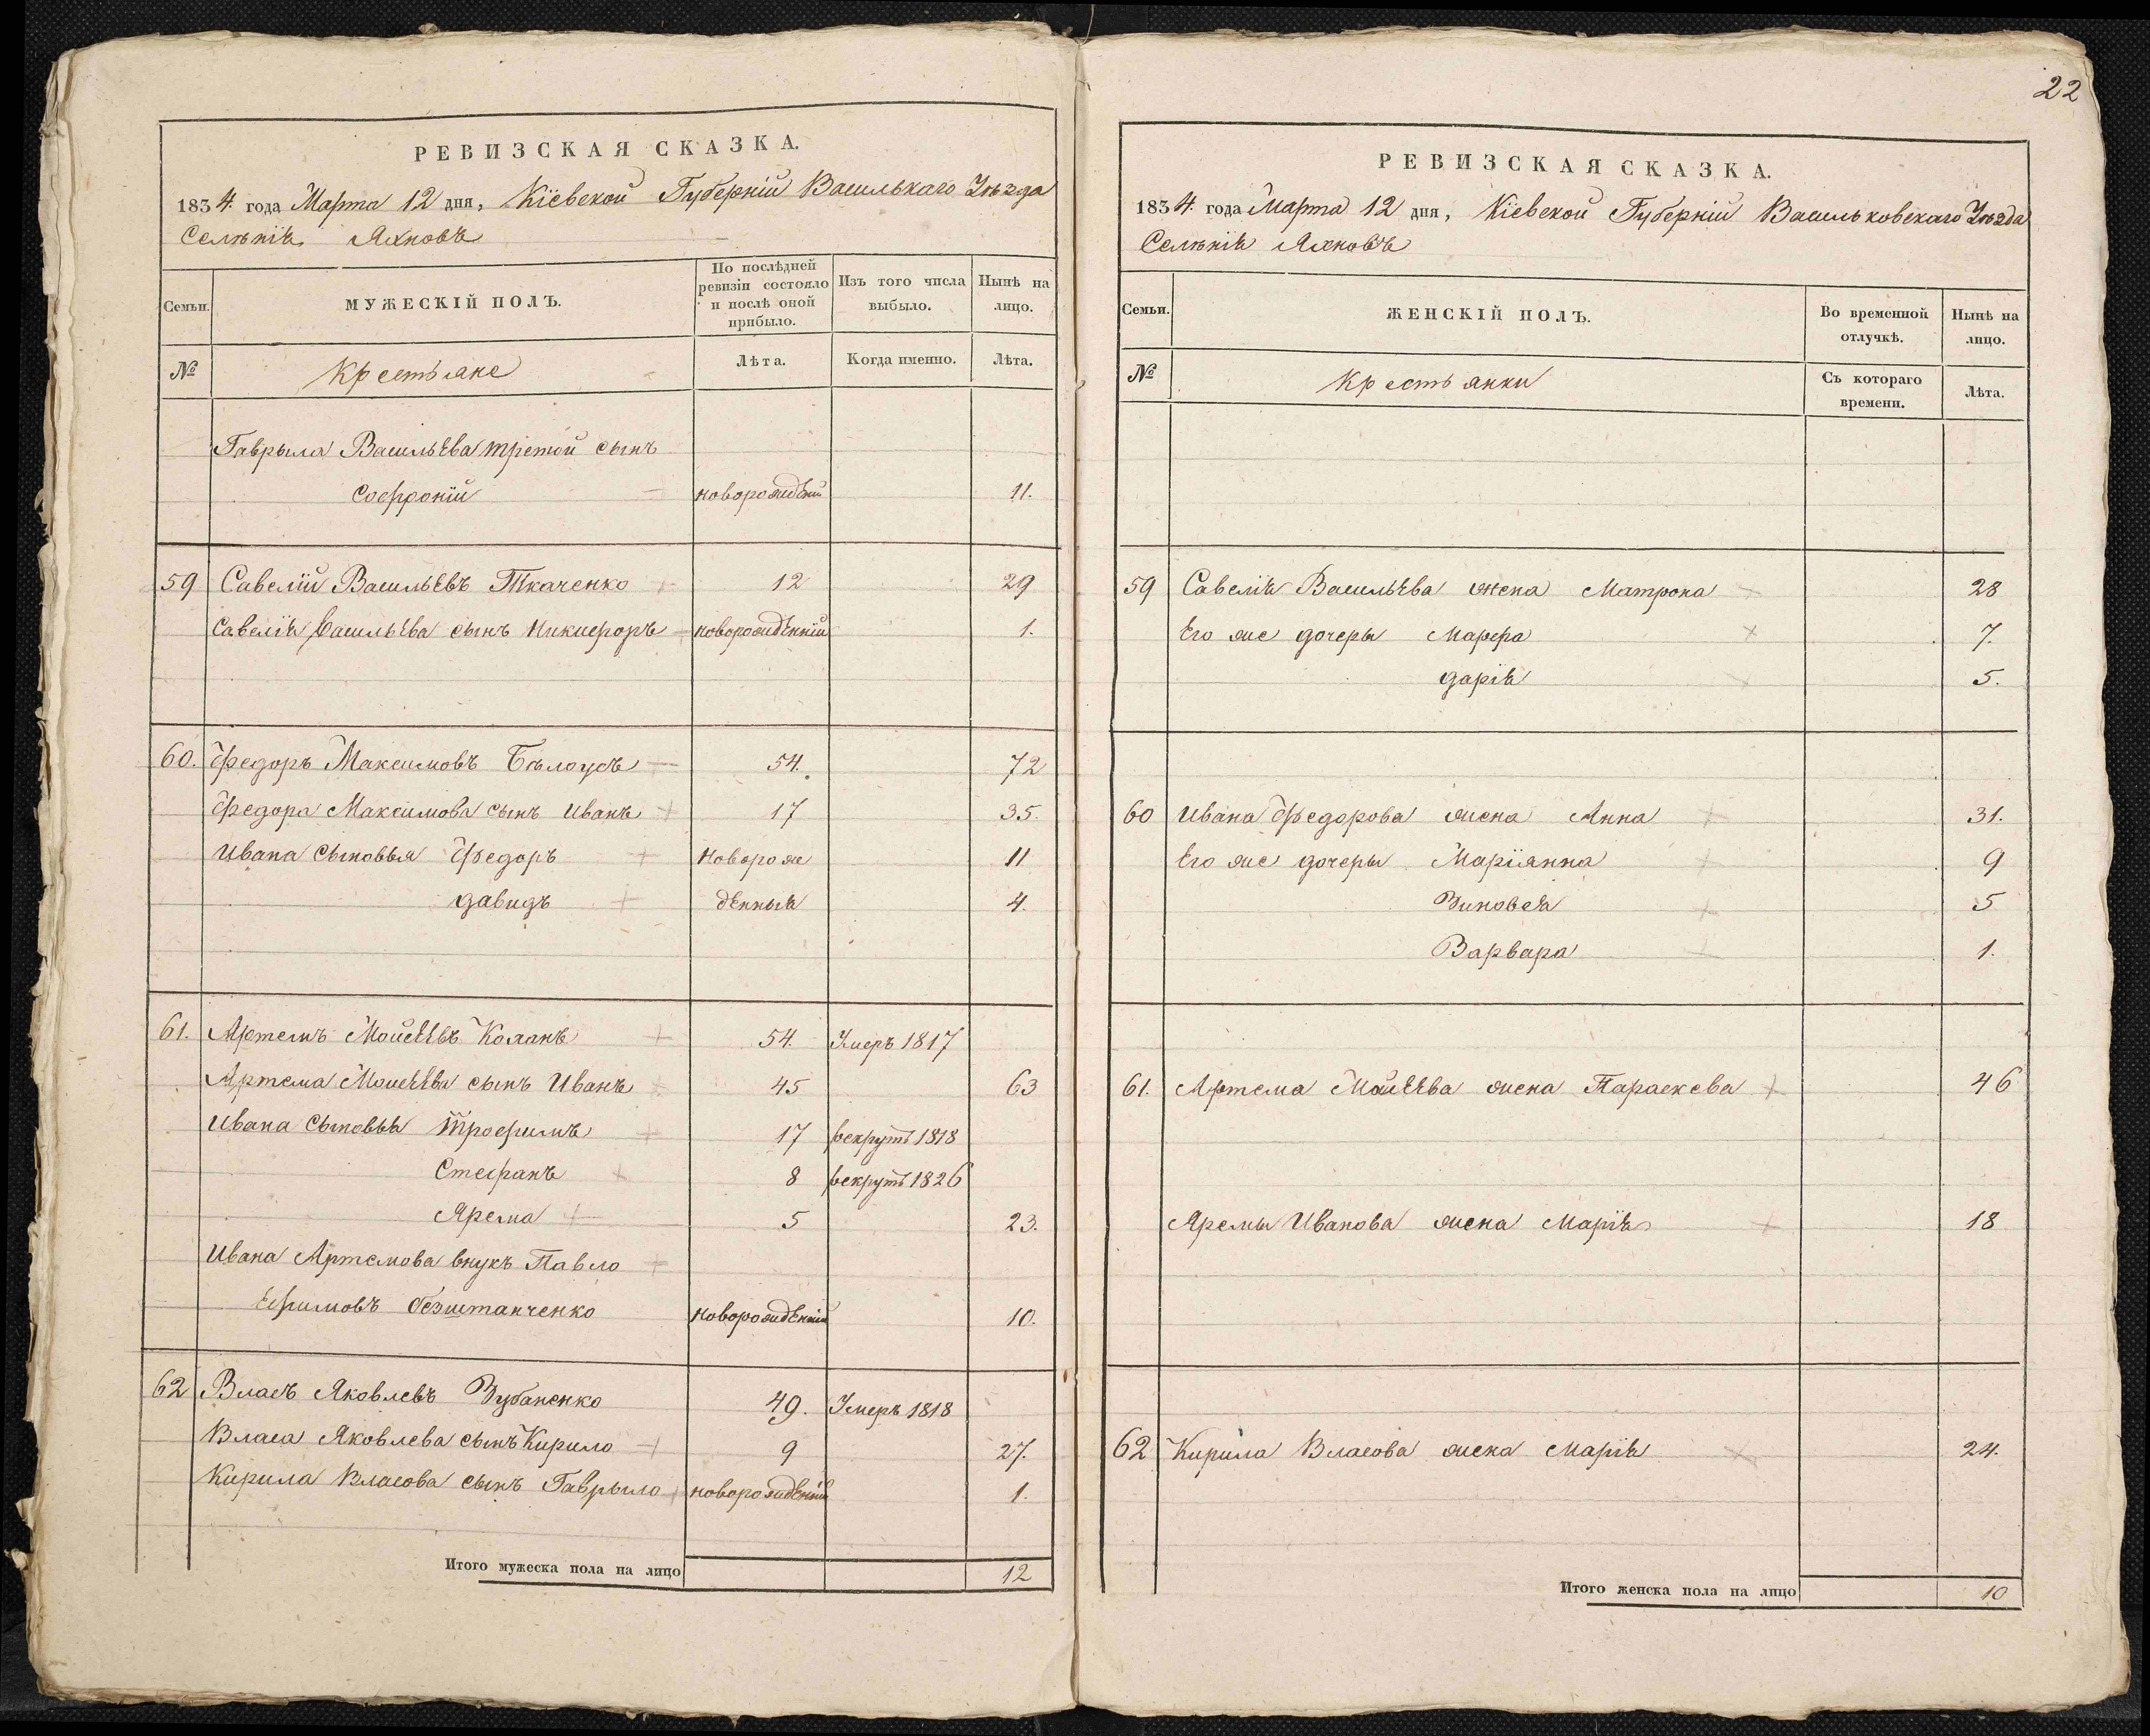 22
РЕВИЗСКАЯ СКАЗКА.
1834 года Марта 12 дня, Кіевской Губерніи Василькаго Уѣзда
Селѣнія Яхновъ
Семьи.
МУЖЕСКІЙ ПОЛЪ.
По послѣдней ревизіи состояло и послѣ оной прибыло.
Изъ того числа выбыло.
Нынѣ на лицо.
№
Крестьяне
Лѣта.
Когда именно.
Лѣта.
Гаврыла Васильева третой сынъ
Софроній новорожденій 11.
59 Савелій Васильевъ Ткаченко 12 29
Савелія Васильева сынъ Никифоръ новорожденній 1.
60. Федоръ Максимовъ Бѣлоусъ 54. 72
Федора Максимова сынъ Иванъ 17 35.
Ивана сыновья Федоръ Новорож 11
давидъ денныя 4.
61. Артемъ Мойсеевъ 54. Умеръ 1817
Артема Моисеева сынъ Иванъ 45 63
Ивана сыновья Трофимъ 17 рекрутъ 1818
Стефанъ 8 рекрутъ 1826
Ярема 5 23.
Ивана Артемова внукъ Павло
Ефимовъ безштанченко новорожденній 10.
62 Власъ Яковлевъ Зубаненко 49. Умеръ 1818
Власа Яковлева сынъ Кирило 9 27.
Кирила Власова сынъ Гаврыло новорожденній 1.
Итого мужеска пола на лицо 12
РЕВИЗСКАЯ СКАЗКА.
1834 года Марта 12 дня, Кіевской Губерніи Васильковскаго Уѣзда
Селѣнія Яхновъ
Семьи.
ЖЕНСКІЙ ПОЛЪ.
Во временной отлучкѣ.
Нынѣ на лицо.
№
Крестьянки
Съ котораго времени.
Лѣта.
59 Савелія Васильева жена Матрона 28
Его же дочеры Марфа 7.
дарія 5.
60 Ивана Федорова жена Анна 31.
Его же дочеры Маріянна 9
Зиновея 5
Варвара 1.
61. Артема Мойсеева жена Параскева 46
Яремы Иванова жена Марія 18
62 Кирила Власова жена Марія 24.
Итого женска пола на лицо 10